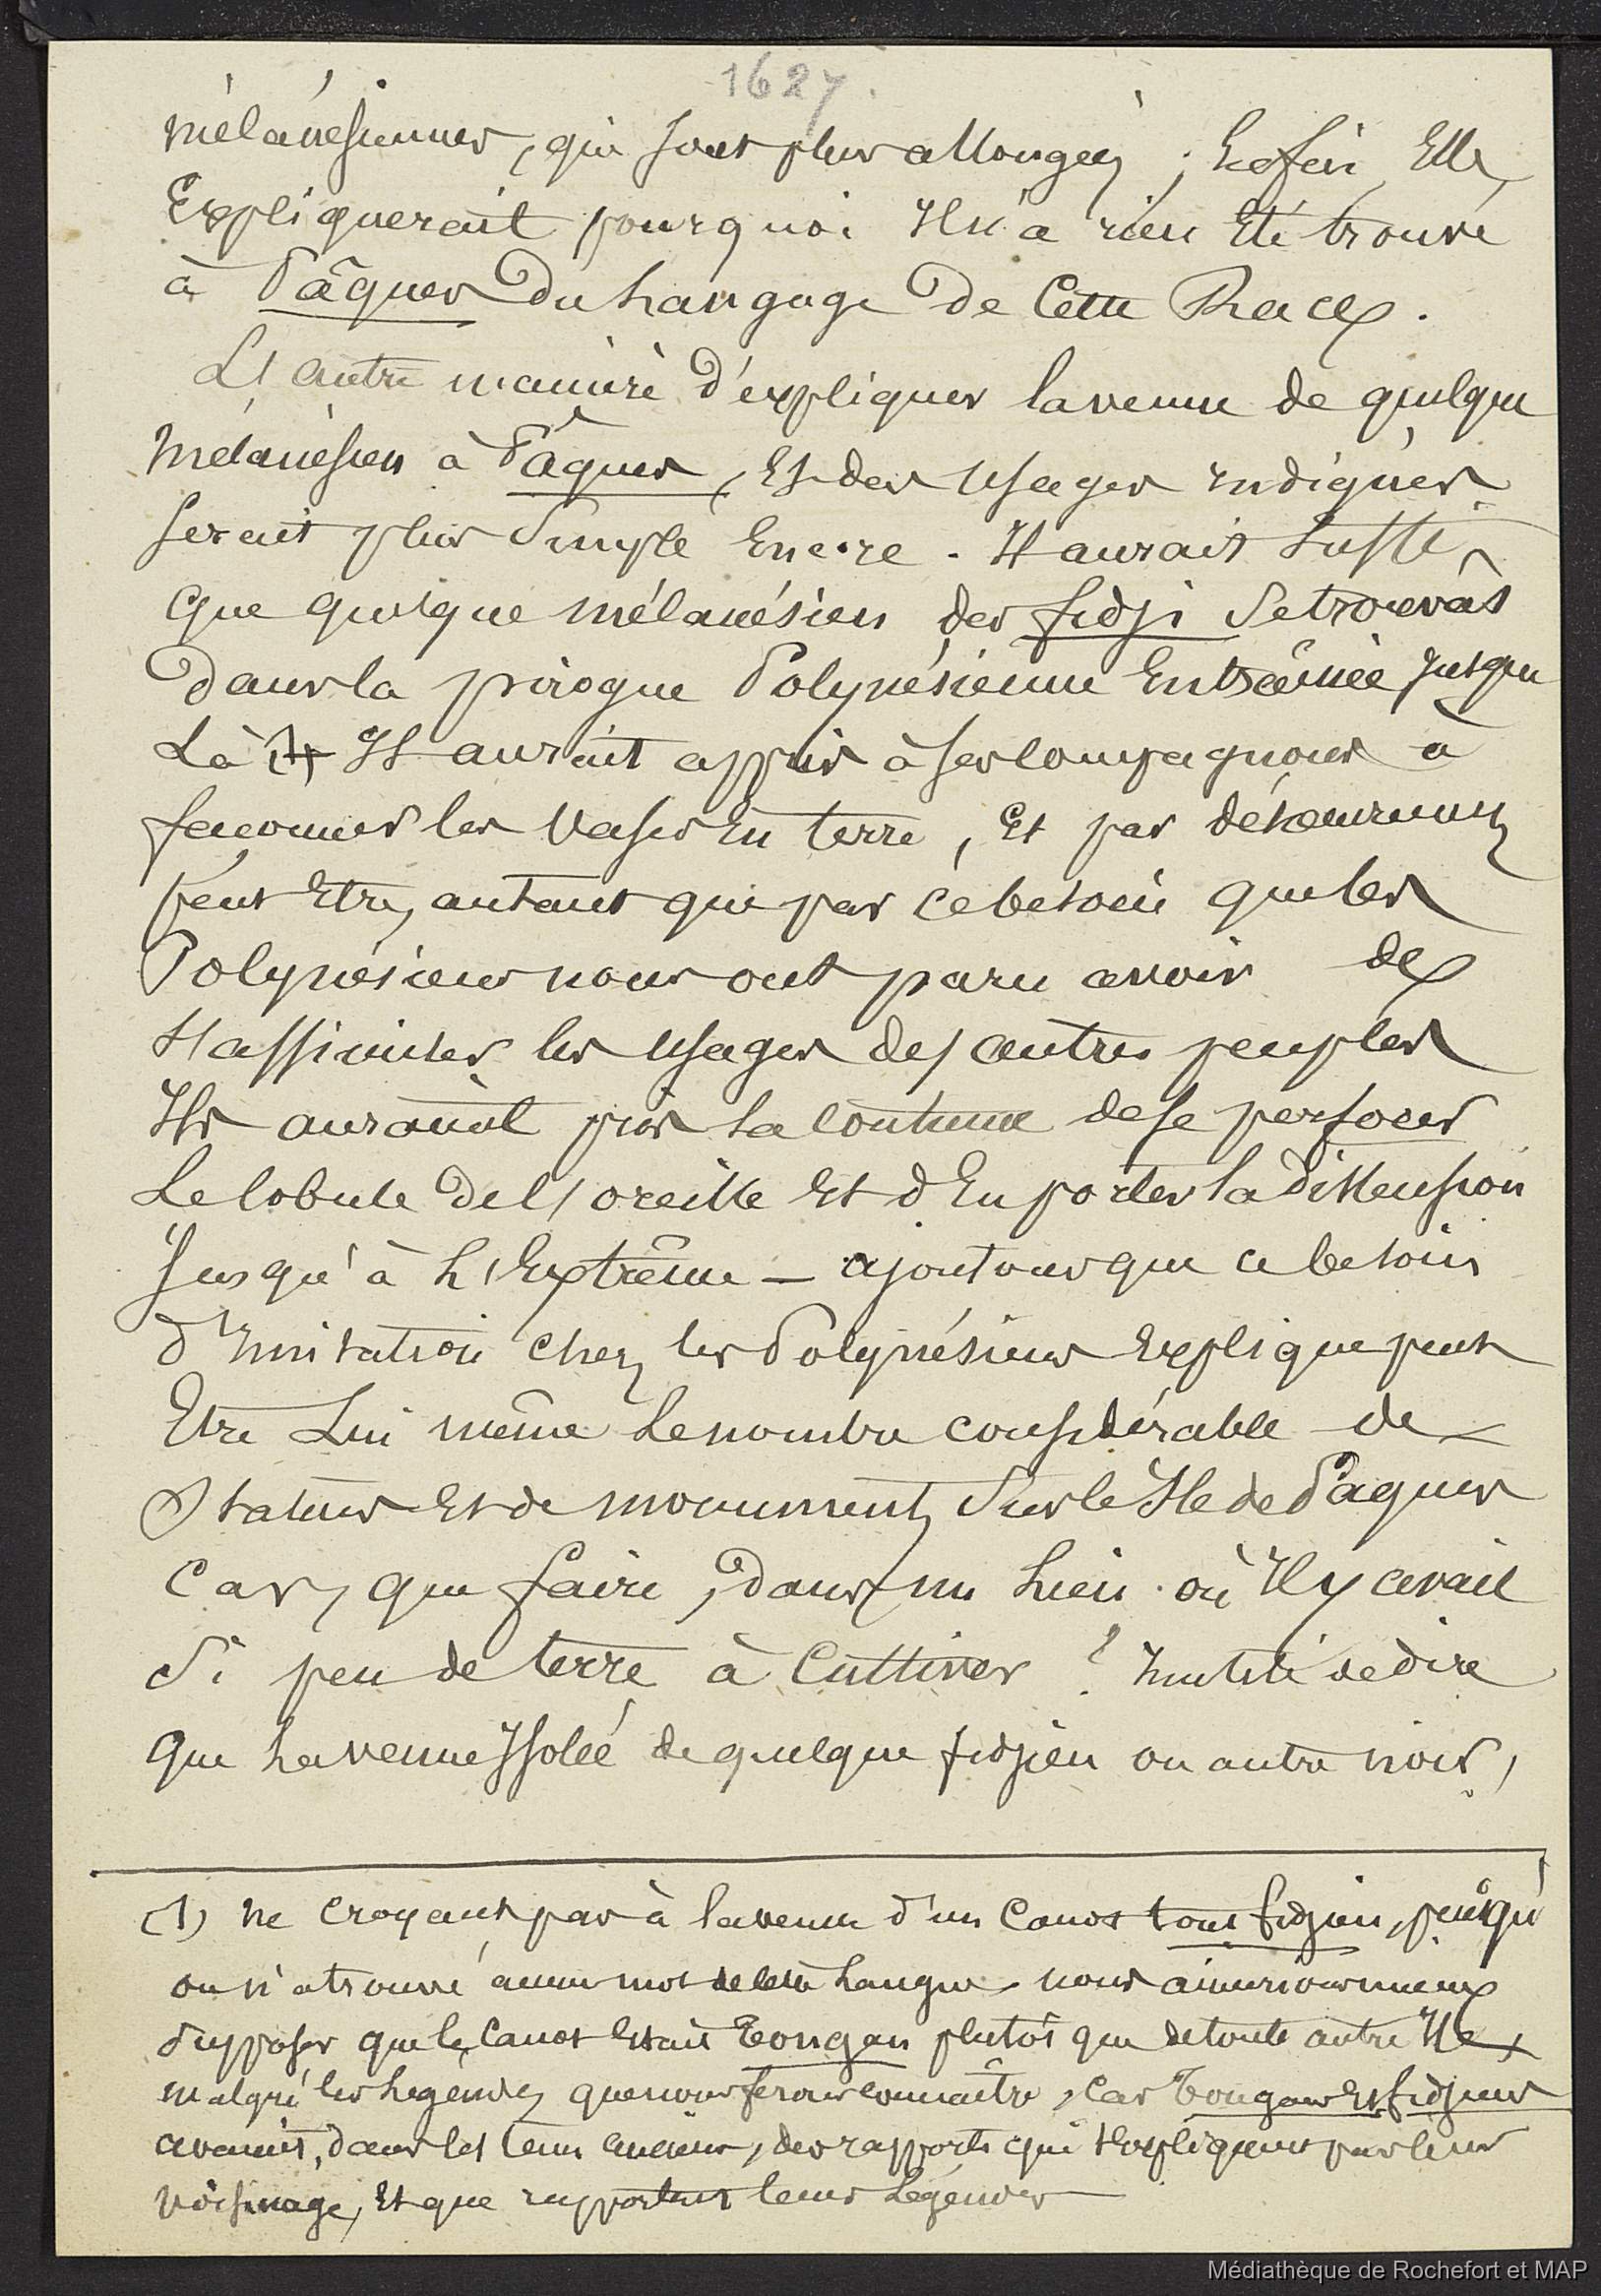 1627.
mélanésiennes, qui sont plus allongées ; Enfin, Elle
Expliquerait pourquoi Il n'a rien Eté trouvé
à Pâques du Langage de Cette Race.
L'autre manière d'expliquer la venue de quelque
mélanésien à Pâques, Et des Usages indigènes
serait plus Simple Encore. Il aurait Suffi
que quelque mélanésien des fidji Se trouvât
dans la pirogue Polynésienne Entraînée jusque
Là (1) Il aurait appris à ses compagnons à
façonner les Vases En terre, Et par désoeuvrement
peut Etre, autant que par ce besoin que les
Polynésiens nous ont paru avoir de
s'assimiler les usages des autres peuples
Ils auraient pris la coutume de se perforer
Le lobule de l'oreille Et d'En porter la distension
Jusqu'à L'Extrême — ajoutons que ce besoin
d'Imitation chez les Polynésiens Explique peut
Etre Lui même Le nombre considérable de
Statues Et de monuments Sur le Ile de Pâques
Car, que faire, dans un Lieu où Il y avait
Si peu de terre à Cultiver ? Inutile de dire
que La venue Isolée de quelque fidjien ou autre noir,
(1) Ne croyant pas à la venue d'un Canot tout fidjien, puisqu'
on n'a trouvé aucun mot de cette Langue, nous aimerions mieux
supposer que le Canot Etait Tongan plutôt que de toute autre Ile,
malgré les Légendes que nous ferons connaître, Car Tongans Et fidjiens
avaient, dans les tems anciens, des rapports qui s'expliquent par leur
voisinage, Et que rapportent leurs Légendes
Médiathèque de Rochefort et MAP